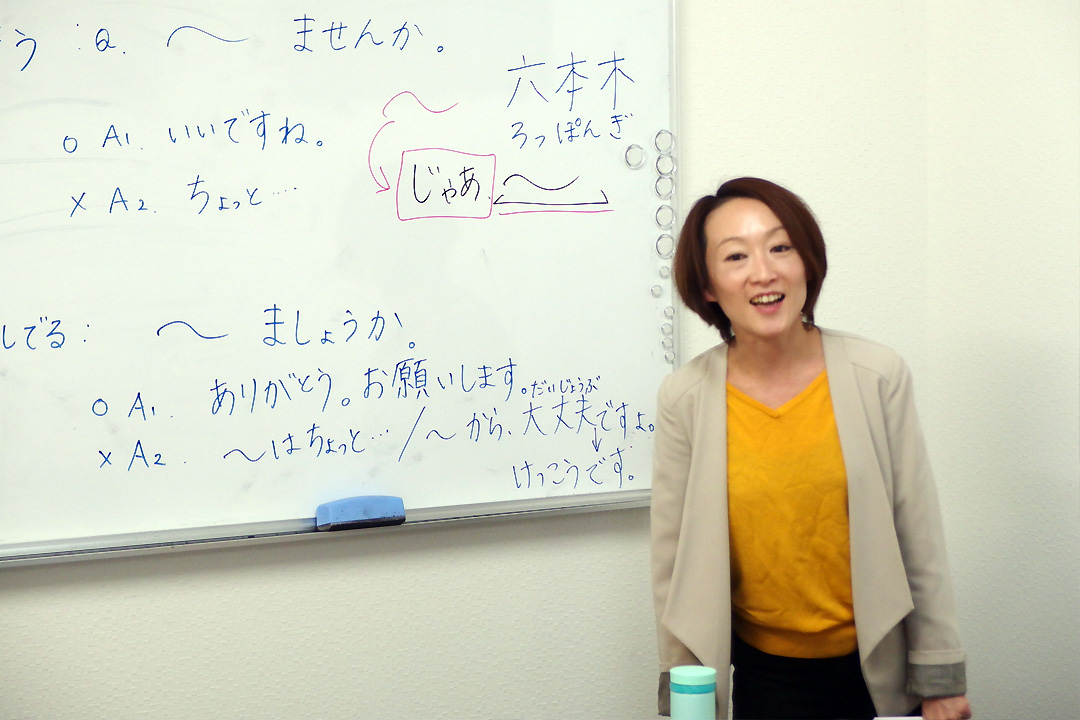 う : Q. 〜 ませんか。
六本木
ろっぽんぎ
○ A1. いいですね。
じゃあ、〜
× A2. ちょっと…
してる : 〜 ましょうか。
○ A1. ありがとう。お願いします。
だいじょうぶ
× A2. 〜はちょっと… / 〜から、大丈夫ですよ。
↓
けっこうです。